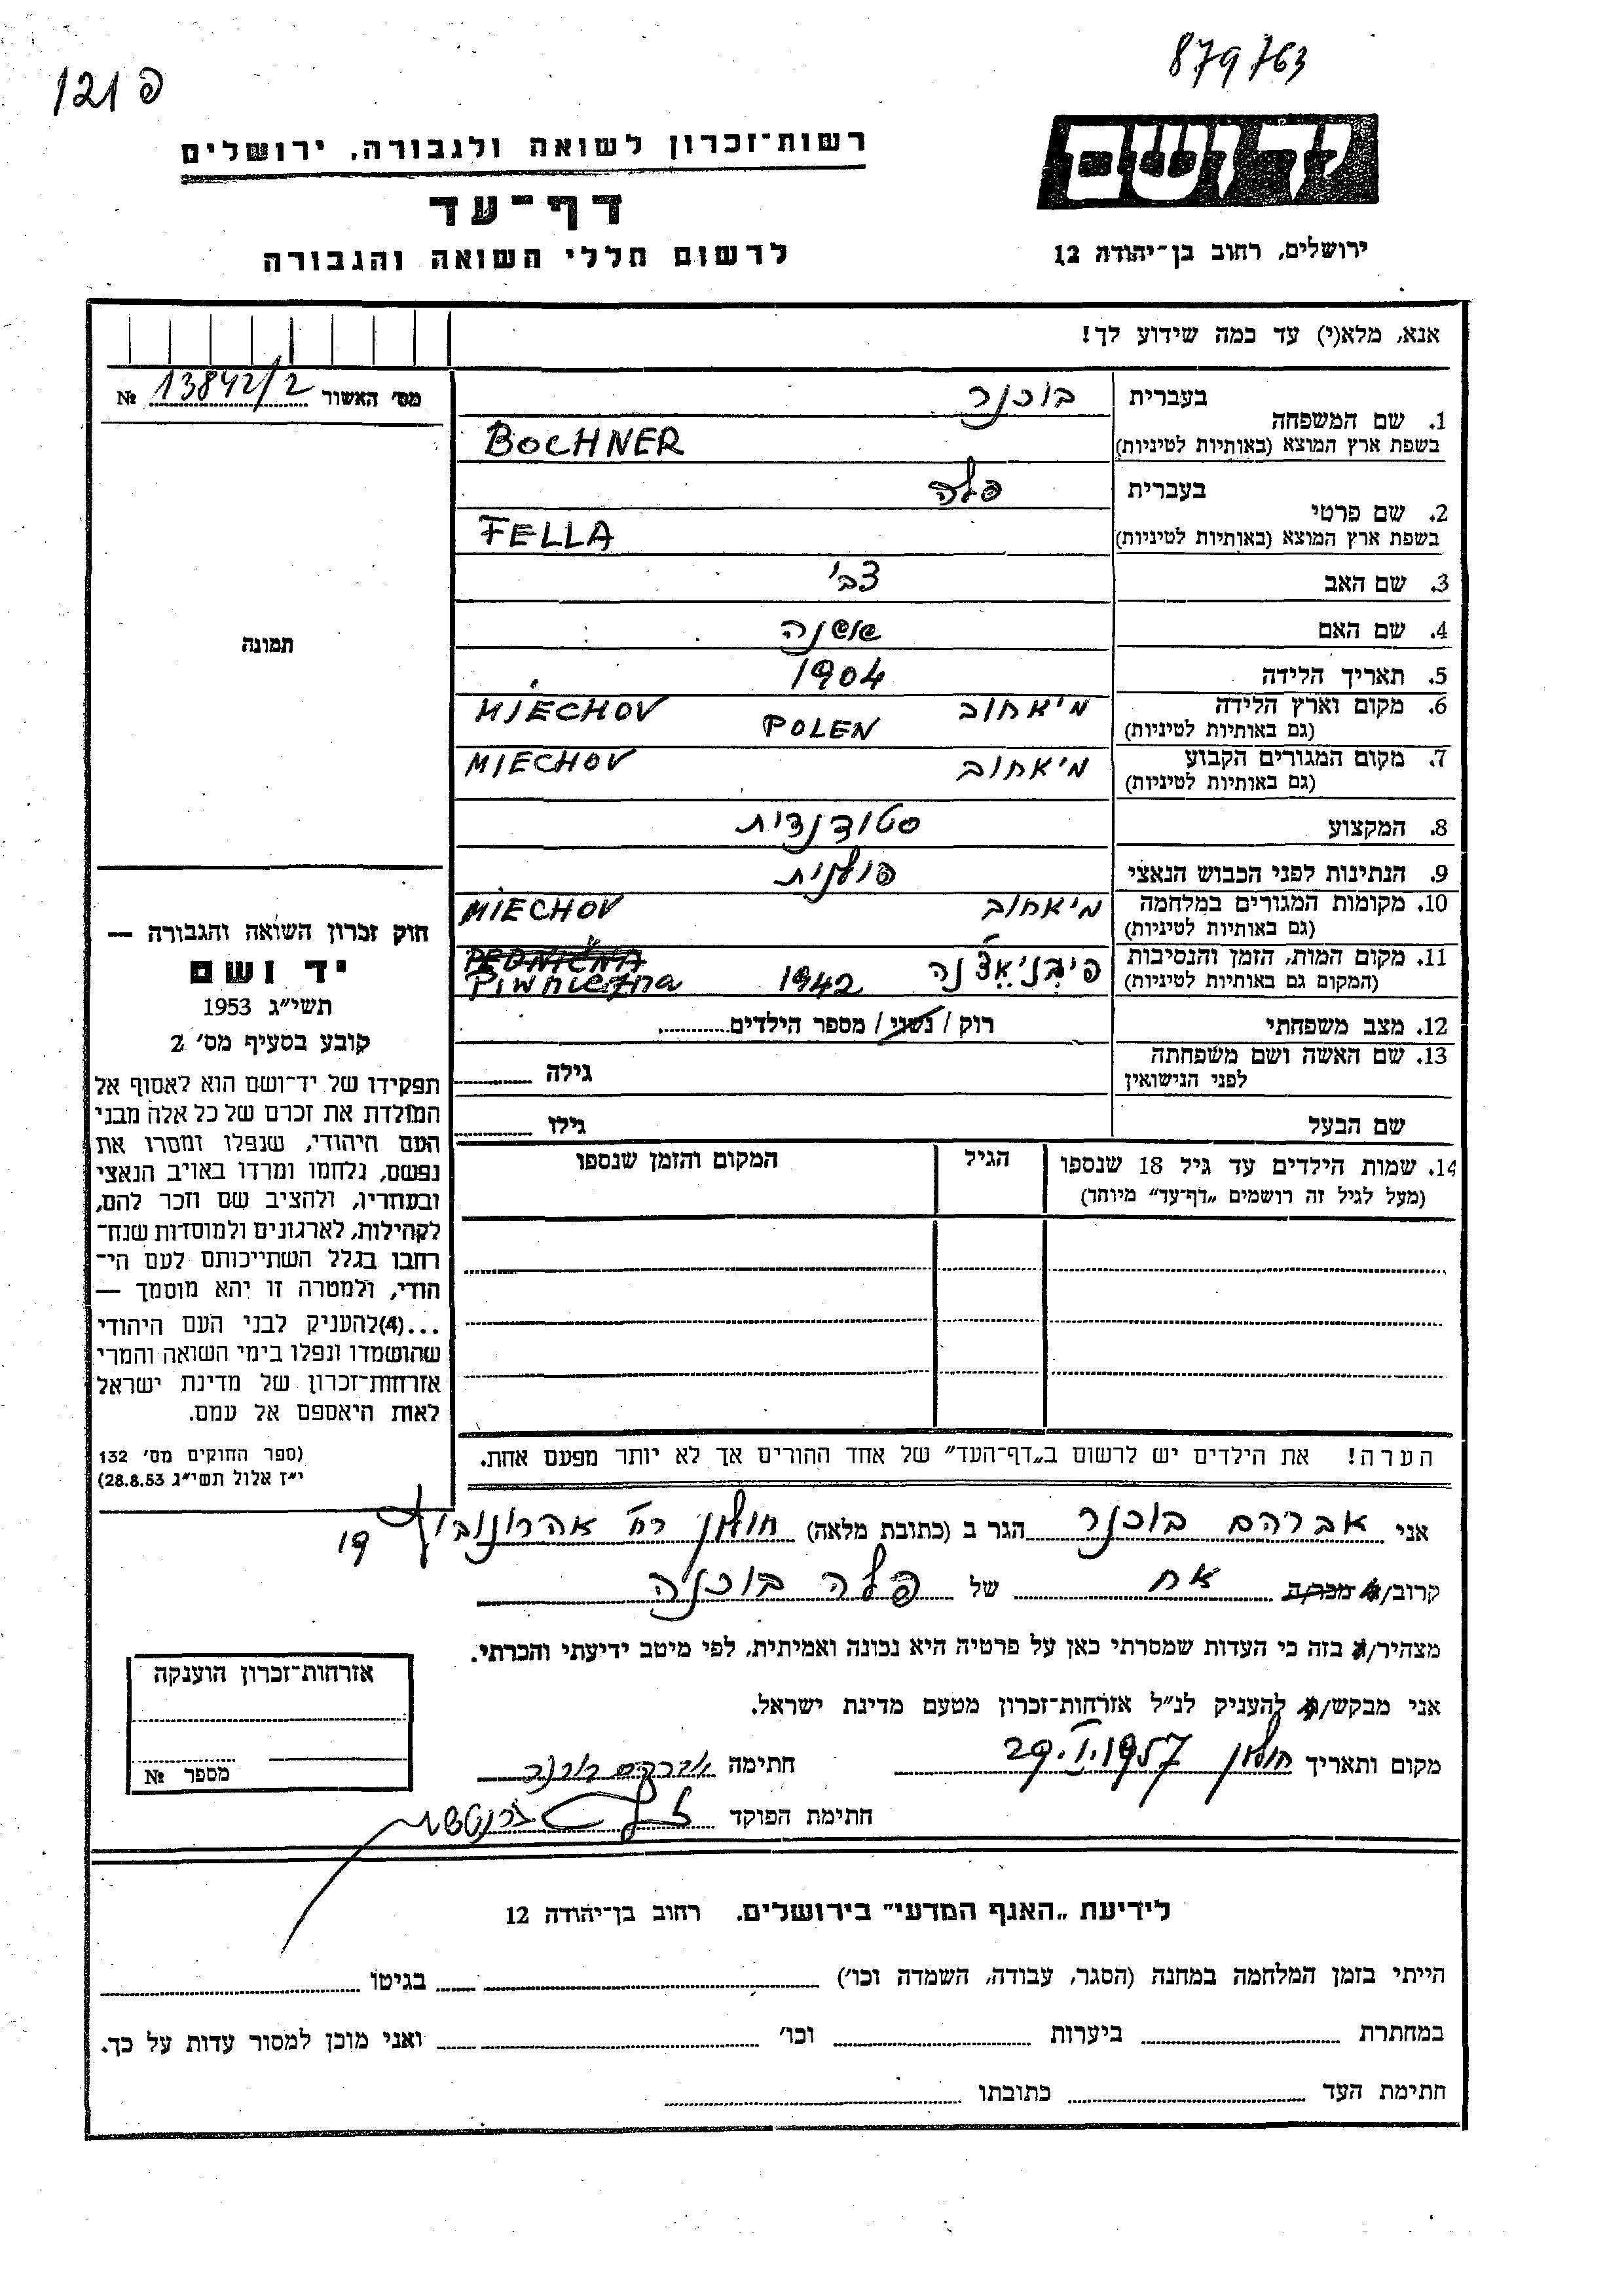 879763
פ 121
יד ושם
רשות־זכרון לשואה ולגבורה, ירושלים
דף־עד
לרשום חללי השואה והגבורה
ירושלים, רחוב בן־יהודה 12
אנא, מלא(י) עד כמה שידוע לך!
מס׳ האשור 13842/2 №
תמונה
1. שם המשפחה
בעברית בוכנר
בשפת ארץ המוצא (באותיות לטיניות) BOCHNER
2. שם פרטי
בעברית פלה
בשפת ארץ המוצא (באותיות לטיניות) FELLA
3. שם האב צבי
4. שם האם שושנה
5. תאריך הלידה 1904
6. מקום וארץ הלידה מיאחוב POLEN MIECHOV
(גם באותיות לטיניות)
7. מקום המגורים הקבוע מיאחוב MIECHOV
(גם באותיות לטיניות)
8. המקצוע סטודנדית
9. הנתינות לפני הכבוש הנאצי פולנית
10. מקומות המגורים במלחמה מיאחוב MIECHOV
(גם באותיות לטיניות)
11. מקום המות, הזמן והנסיבות פיבניאצנה 1942 Piwniczna
(המקום גם באותיות לטיניות)
12. מצב משפחתי רוק / נשוי / מספר הילדים
13. שם האשה ושם משפחתה גילה
לפני הנישואין
שם הבעל גילו
14. שמות הילדים עד גיל 18 שנספו הגיל המקום והזמן שנספו
(מעל לגיל זה רושמים „דף־עד” מיוחד)
הערה! את הילדים יש לרשום ב„דף־העד” של אחד ההורים אך לא יותר מפעם אחת.
חוק זכרון השואה והגבורה —
יד ושם
תשי״ג 1953
קובע בסעיף מס׳ 2
תפקידו של יד־ושם הוא לאסוף אל
המולדת את זכרם של כל אלה מבני
העם היהודי, שנפלו ומסרו את
נפשם, נלחמו ומרדו באויב הנאצי
ובעוזריו, ולהציב שם וזכר להם,
לקהילות, לארגונים ולמוסדות שנח־
רבו בגלל השתייכותם לעם הי־
הודי, ולמטרה זו יהא מוסמך —
...(4)להעניק לבני העם היהודי
שהושמדו ונפלו בימי השואה והמרי
אזרחות־זכרון של מדינת ישראל
לאות היאספם אל עמם.
(ספר החוקים מס׳ 132
י״ז אלול תשי״ג 28.8.53)
אני אברהם בוכנר הגר ב (כתובת מלאה) חולון רח׳ אהרונוביץ 19
קרוב/ה מכר/ה אח של פלה בוכנר
מצהיר/ה בזה כי העדות שמסרתי כאן על פרטיה היא נכונה ואמיתית, לפי מיטב ידיעתי והכרתי.
אני מבקש/ת להעניק לנ״ל אזרחות־זכרון מטעם מדינת ישראל.
מקום ותאריך חולון 29.V.1957 חתימה אברהם בוכנר
חתימת הפוקד
אזרחות־זכרון הוענקה
מספר №
לידיעת „האגף המדעי” בירושלים. רחוב בן־יהודה 12
הייתי בזמן המלחמה במחנה (הסגר, עבודה, השמדה וכו׳) בגיטו
במחתרת ביערות וכו׳ ואני מוכן למסור עדות על כך.
חתימת העד כתובתו